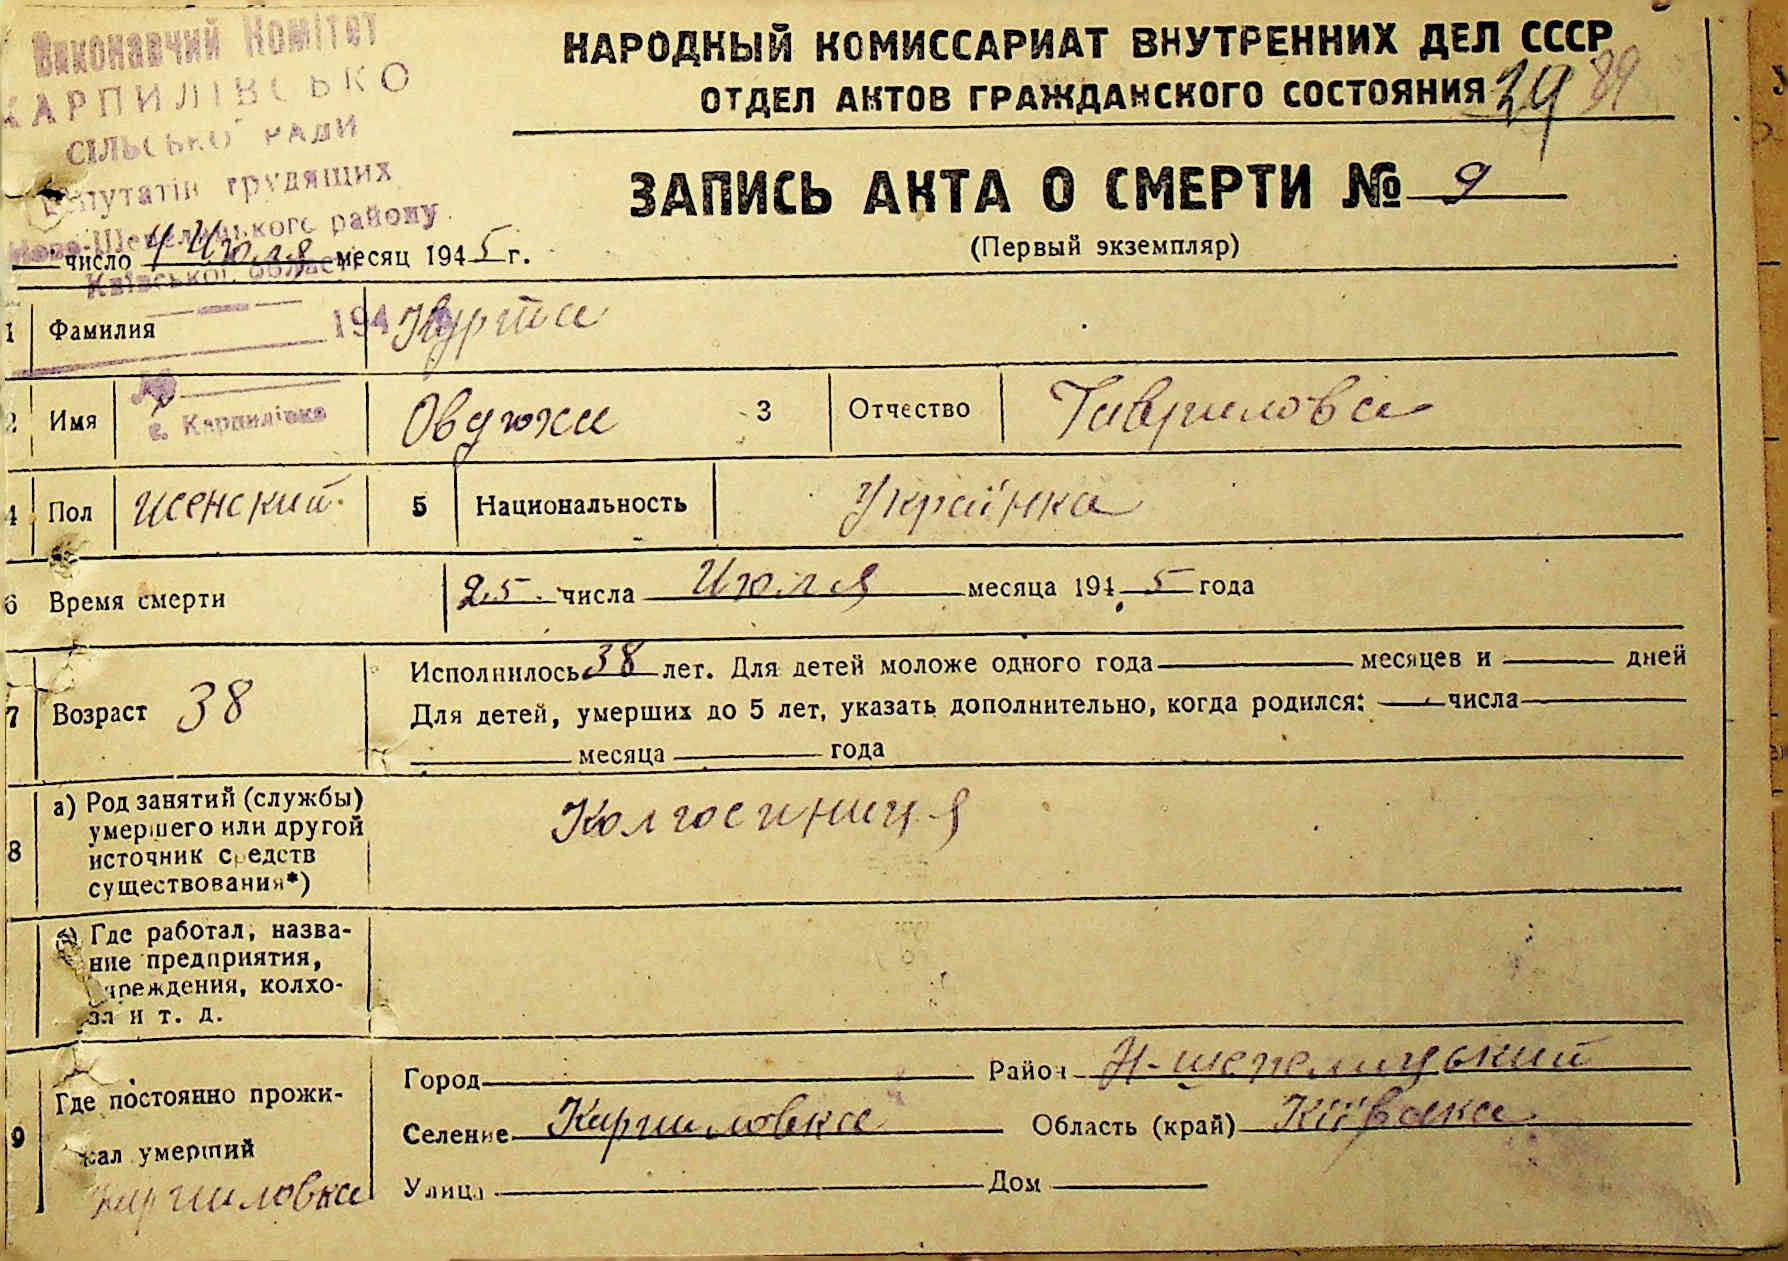 Виконавчий Комітет
КАРПИЛІВСЬКО
СІЛЬСЬКОЇ РАДИ
депутатів трудящих
Ново-Шепелицького району
Київської області
194
с. Карпилівка
НАРОДНЫЙ КОМИССАРИАТ ВНУТРЕННИХ ДЕЛ СССР
ОТДЕЛ АКТОВ ГРАЖДАНСКОГО СОСТОЯНИЯ 39 89
ЗАПИСЬ АКТА О СМЕРТИ № 9
(Первый экземпляр)
число Июля месяц 1945 г.
1 Фамилия
2 Имя Овдюха 3 Отчество Гавриловa
4 Пол женский 5 Национальность Українка
6 Время смерти 25 числа Июля месяца 1945 года
7 Возраст 38 Исполнилось 38 лет. Для детей моложе одного года месяцев и дней
Для детей, умерших до 5 лет, указать дополнительно, когда родился: числа
месяца года
8 а) Род занятий (службы)
умершего или другой
источник средств
существования*)
Колгоспниця
б) Где работал, назва-
ние предприятия,
учреждения, колхо-
за и т. д.
9 Где постоянно прожи-
вал умерший
Карпиловка
Город Район Н-Шепелицький
Селение Карпиловка Область (край) Київска
Улица Дом